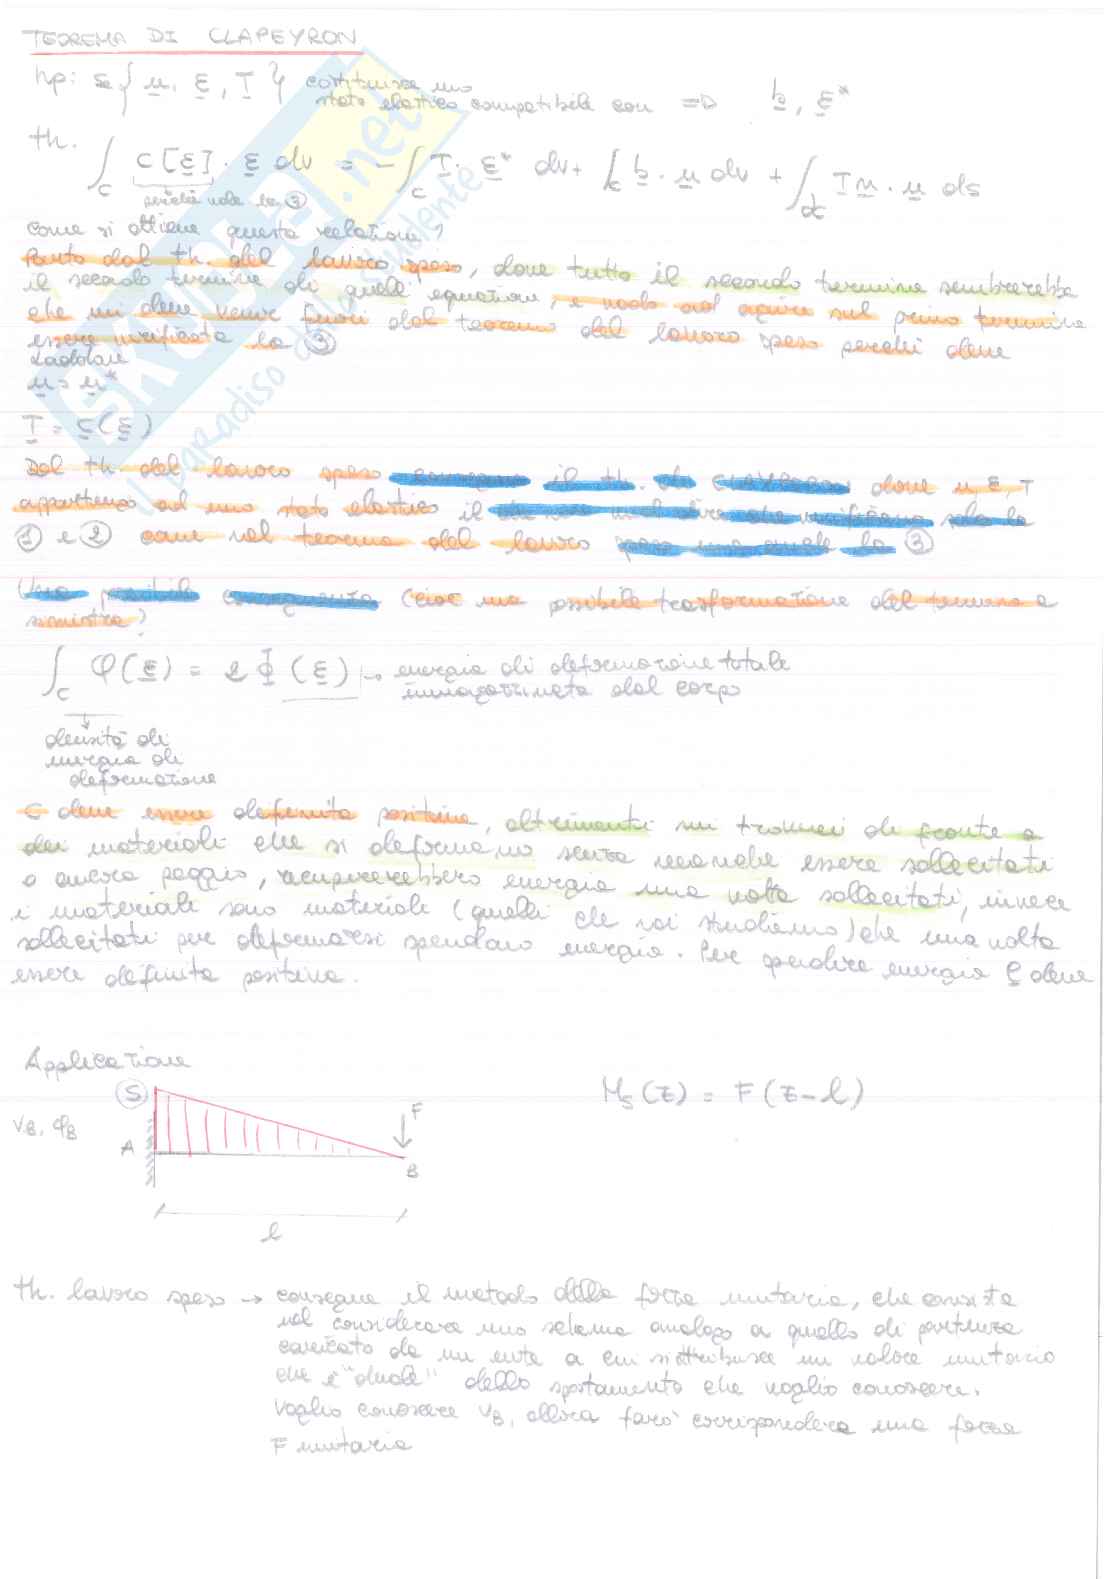 TEOREMA DI CLAPEYRON
hp: se { u, ε, T } costituisce uno
stato elastico compatibile con => b, ε*
th.
∫_C C[ε] · ε dv = - ∫_C T · ε* dv + ∫_C b · u dv + ∫_∂C T n · u ds
perché vale la ③
come si ottiene questa relazione?
Parto dal th. del lavoro speso, dove tutto il secondo termine sembrerebbe
il secondo termine di quell'equazione, e vado ad agire sul primo termine
che mi deve venire fuori dal teorema del lavoro speso perché deve
essere verificata la ③
u = u*
T = C(ε)
Dal th. del lavoro speso consegue il th. di Clapeyron dove u, ε, T
appartengo ad uno stato elastico
① e ② come nel teorema del lavoro speso ma anche la ③
Una possibile conseguenza (cioè una possibile trasformazione del termine a
sinistra)
∫_C φ(ε) = 2 Φ (ε) → energia di deformazione totale
immagazzinata dal corpo
densità di
energia di
deformazione
C deve essere definita positiva, altrimenti mi troverei di fronte a
dei materiali che si deformano senza neanche essere sollecitati
o ancora peggio, recupererebbero energia una volta sollecitati, invece
i materiali sono materiali (quelli che noi studiamo) che una volta
sollecitati per deformarsi spendono energia. Per perdere energia C deve
essere definita positiva.
Applicazione
S
M_S (z) = F (z - l)
F
v_B, φ_B
A
B
l
th. lavoro speso → consegue il metodo della forza unitaria, che consiste
nel considerare uno schema analogo a quello di partenza
caricato da un ente a cui si attribuisce un valore unitario
che è "duale" dello spostamento che voglio conoscere.
Voglio conoscere v_B, allora farò corrispondere una forza
F unitaria
SKUOLA.net
il paradiso dello studente